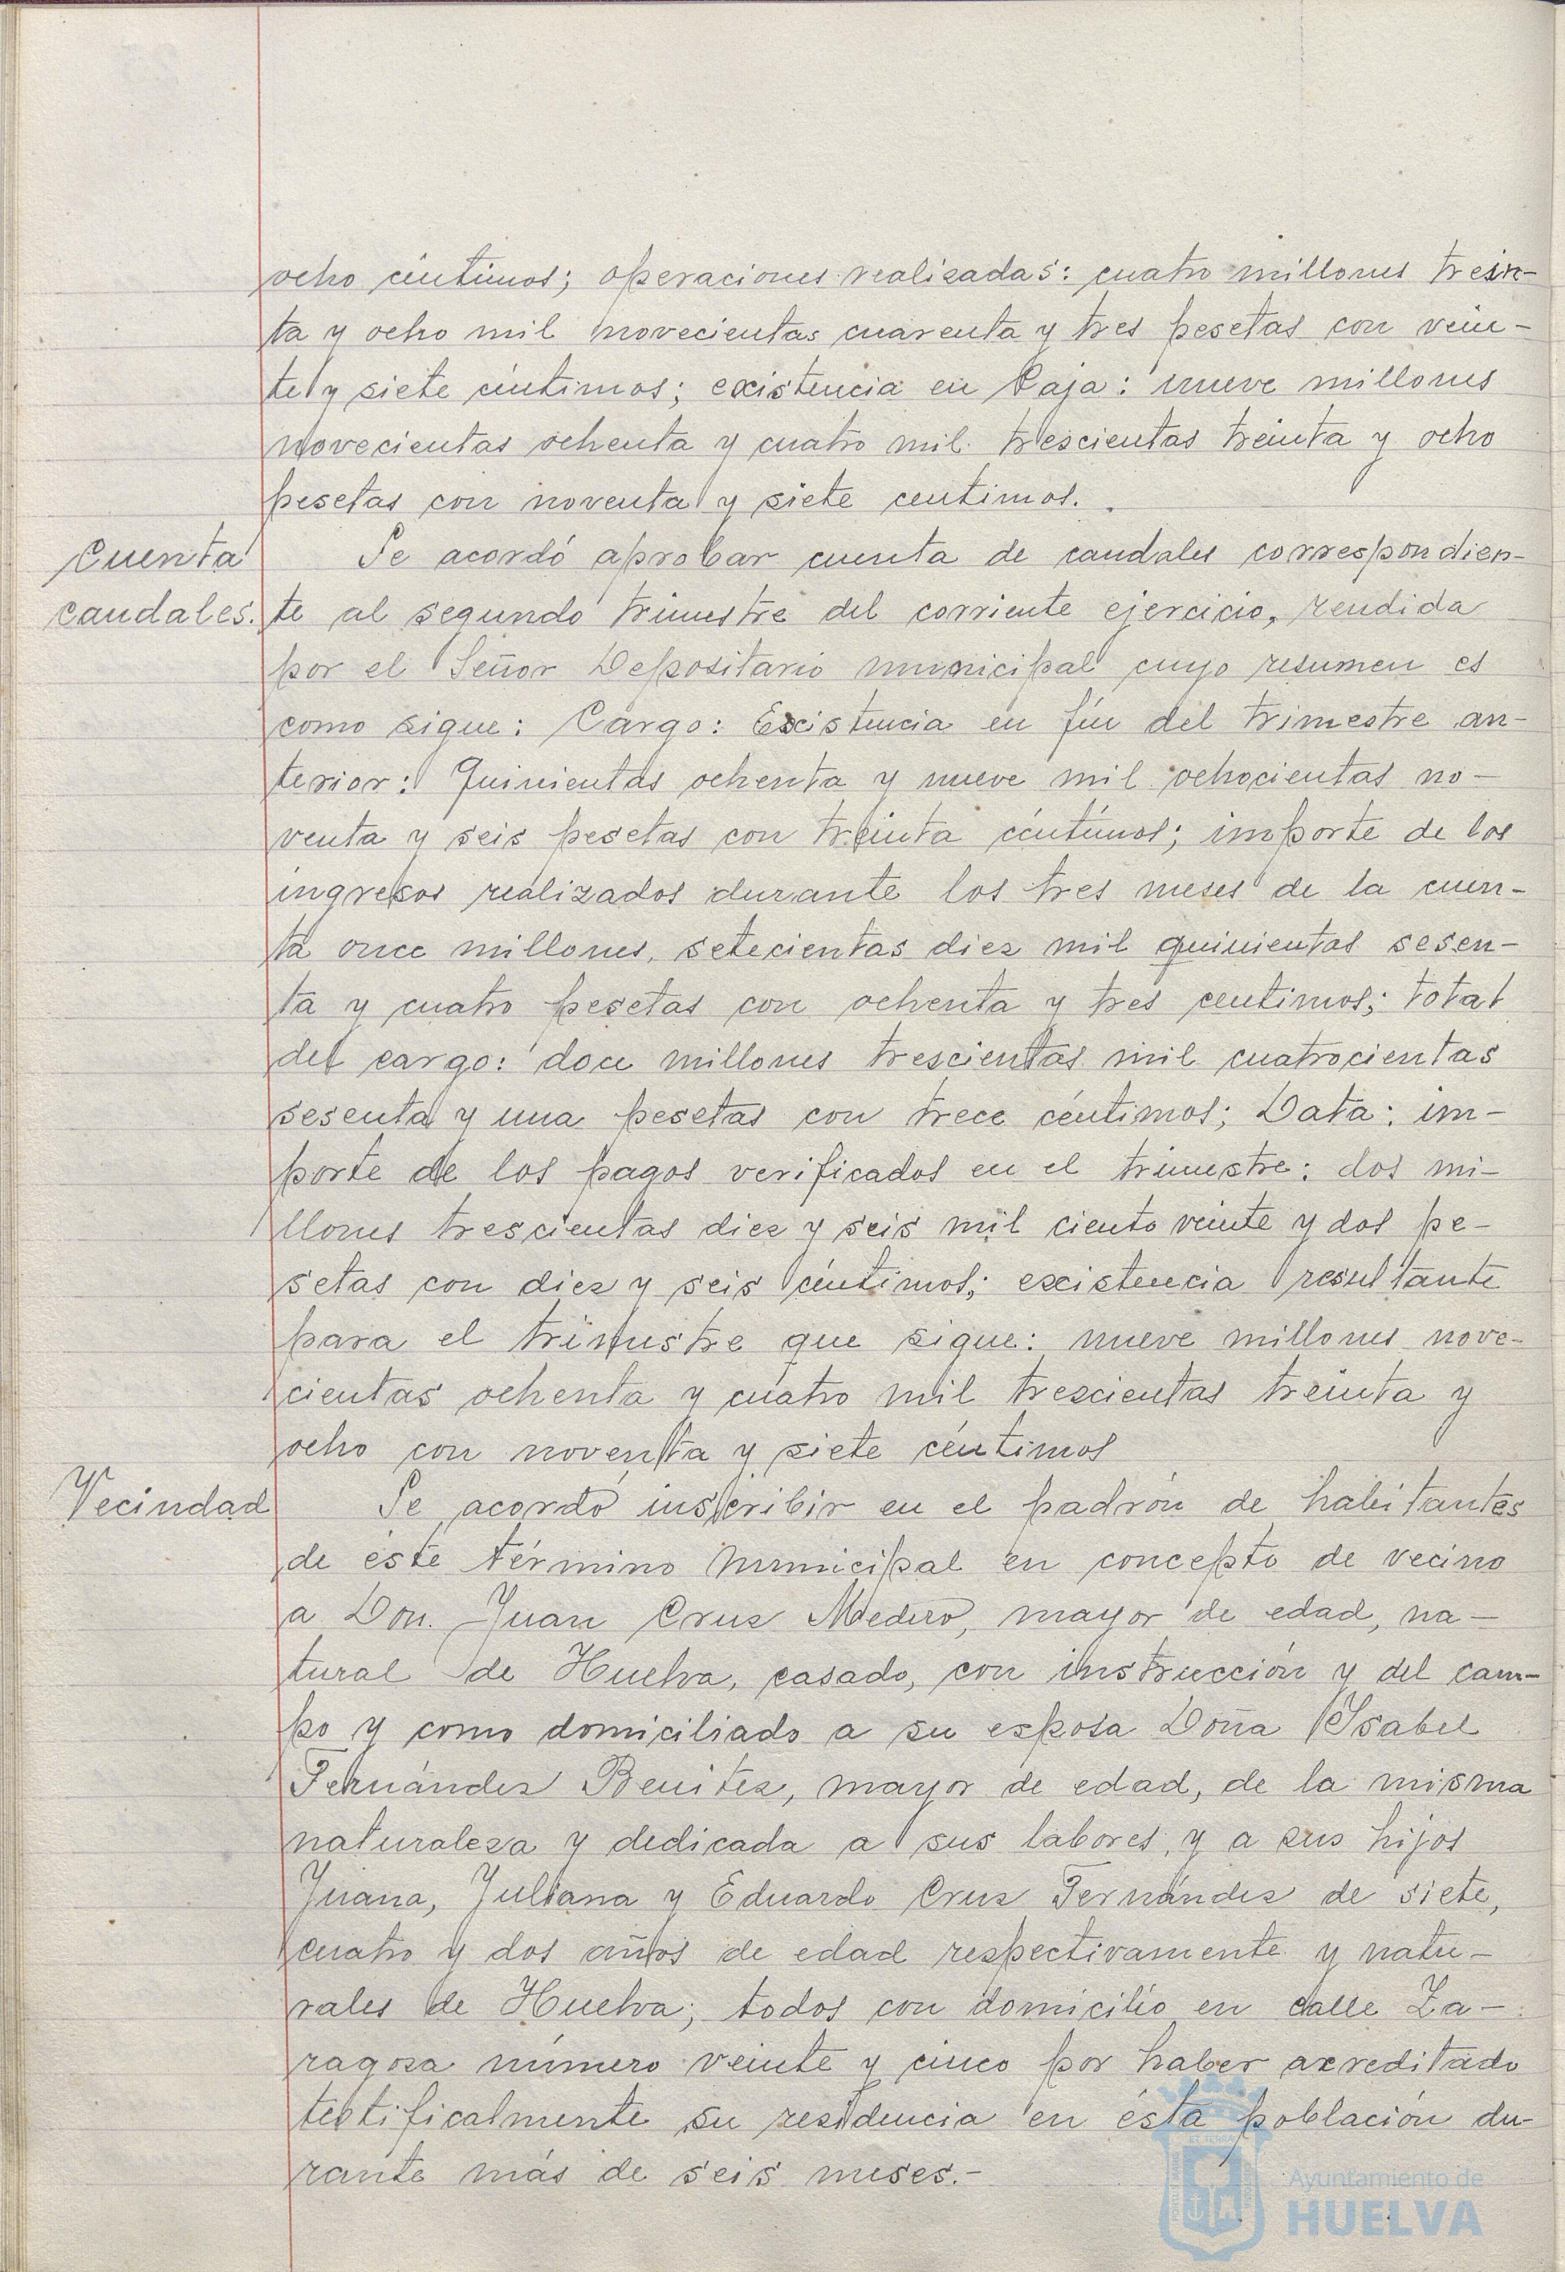 ocho céntimos; operaciones realizadas: cuatro millones trein-
ta y ocho mil novecientas cuarenta y tres pesetas con vein-
te y siete céntimos; existencia en Caja: nueve millones
novecientas ochenta y cuatro mil trescientas treinta y ocho
pesetas con noventa y siete centimos.
Cuenta
caudales.
Se acordó aprobar cuenta de caudales correspondien-
te al segundo trimestre del corriente ejercicio, rendida
por el Señor Depositario municipal cuyo resumen es
como sigue: Cargo: Existencia en fín del trimestre an-
terior: Quinientas ochenta y nueve mil ochocientas no-
venta y seis pesetas con treinta céntimos; importe de los
ingresos realizados durante los tres meses de la cuen-
ta once millones, setecientas diez mil quinientas sesen-
ta y cuatro pesetas con ochenta y tres centimos; total
del cargo: doce millones trescientas mil cuatrocientas
sesenta y una pesetas con trece céntimos; Data: im-
porte de los pagos verificados en el trimestre: dos mi-
llones trescientas diez y seis mil ciento veinte y dos pe-
setas con diez y seis céntimos; existencia resultante
para el trimestre que sigue: nueve millones nove-
cientas ochenta y cuatro mil trescientas treinta y
ocho con noventa y siete céntimos
Vecindad
Se acordó inscribir en el padrón de habitantes
de éste término municipal en concepto de vecino
a Don. Juan Cruz Medero, mayor de edad, na-
tural de Huelva, casado, con instrucción y del cam-
po y como domiciliado a su esposa Doña Ysabel
Fernández Benítez, mayor de edad, de la misma
naturaleza y dedicada a sus labores, y a sus hijos
Juana, Juliana y Eduardo Cruz Fernández de siete,
cuatro y dos años de edad respectivamente y natu-
rales de Huelva; todos con domicilio en calle Za-
ragoza número veinte y cinco por haber acreditado
testificalmente su residencia en ésta población du-
rante más de seis meses.-
Ayuntamiento de
HUELVA